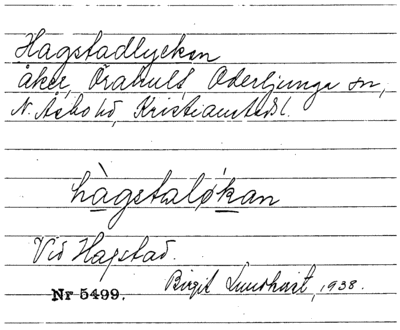 Hagstadlyckan
åker, Örahult, Oderljunga sn,
N. Åsbo hd, Kristianstads l.
hàgstalǿkan
Vid Hagstad.
Nr 5499. Birgit Lundhart, 1938.